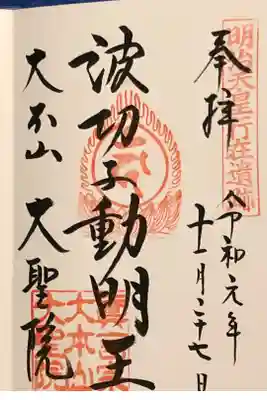 明治天皇行在遺跡
奉拝
令和元年
十一月二十七日
波切不動明王
大本山 大聖院
大本山
大聖院